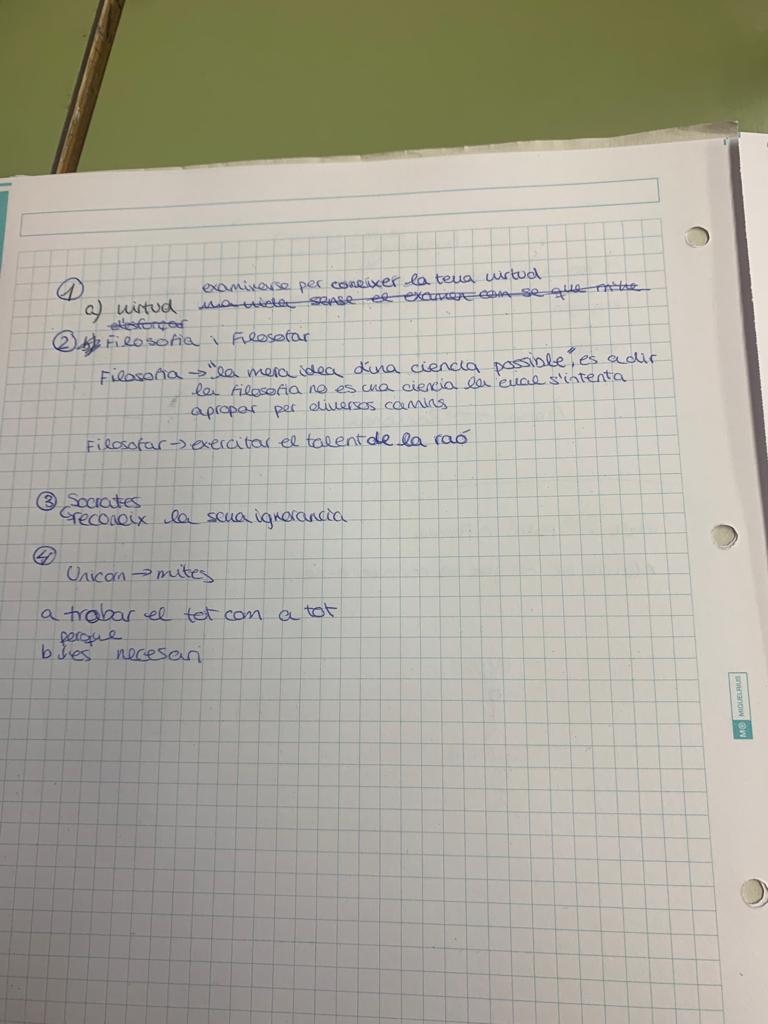 ①
examinarse per coneixer la teua virtud
a) virtud una vida sense el examen com se que
d'esforçar
② Filosofia i Filosofar
Filosofia → "la mera idea d'una ciencia possible", es a dir
la filosofia no es una ciencia la cual s'intenta
apropar per diversos camins
Filosofar → exercitar el talent de la raó
③ Socrates
reconeix la seua ignorancia
④
Unicon → mites
a trabar el tot com a tot
perque
b es necesari
M MIQUELRIUS